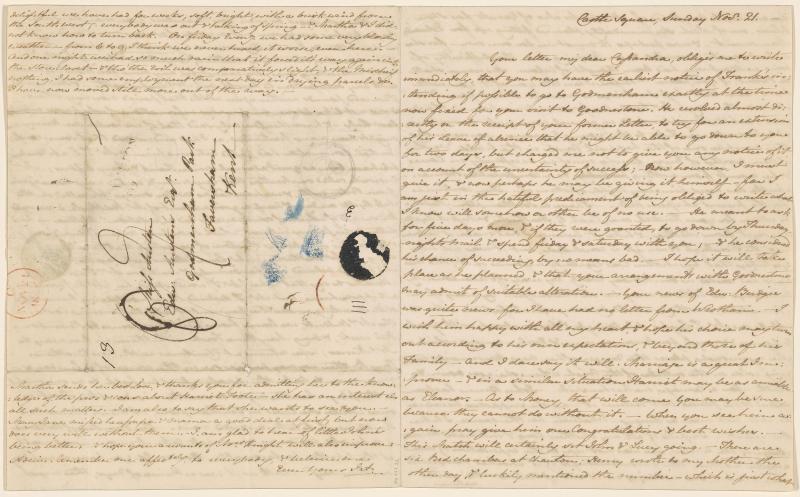 Castle Square, Sunday Nov: 21.
Your letter my dear Cassandra, obliges me to write
immediately that you may have the earliest notice of Frank's in-
-tending if possible to go to Godmersham exactly at the time
now fixed for your visit to Goodnestone. He resolved almost di-
-rectly on the receipt of your former Letter, to try for an extension
of his Leave of absence that he might be able to go down to you
for two days, but charged me not to give you any notice of it
on account of the uncertainty of success; Now however, I must
give it, & now perhaps he may be giving it himself - for I
am just in the hateful predicament of being obliged to write what
I know will somehow or other be of no use. - He meant to ask
for five days more, & if they were granted, to go down by Thursday
night's mail & spend friday & saturday with you; - & he considered
his chance of succeeding by no means bad. - I hope it will take
place as he planned, & that your arrangements with Goodnestone
may admit of suitable alteration. - Your news of Edw: Bridges
was quite news, for I have had no letter from Wrotham. - I
wish him happy with all my heart, & hope his choice may turn
out according to his own expectations, & beyond those of his
Family - and I dare say it will. Marriage is a great Im-
-prover - & in a similar situation Harriet may be as amiable
as Eleanor. - As to Money, that will come You may be sure
because they cannot do without it. - When you see him a-
-gain, pray give him our Congratulations & best wishes. -
This Match will certainly set John & Lucy going. - There are
six Bedchambers at Chawton; Henry wrote to my Mother the
other day, & luckily mentioned the number - which is just what
delightful we have had for weeks, soft, bright, with a brisk wind from
the Southwest; - everybody was out & talking of spring - & Martha & I did
not know how to turn back. - On friday Eveng we had some very blowing
weather - from 6 to 9, I think we never heard it worse, even here. -
And one night we had so much rain that it forced its way again into
the Store closet - & tho' the Evil was comparatively slight, & the Mischief
nothing, I had some employment the next day in drying parcels &c.
I have now moved still more out of the way. -
Miss Austen
Edw: Austen Esqr
Godmersham Park
Faversham
Kent
13
Martha sends her best Love, & thanks you for admitting her to the know-
-ledge of the pros & cons about Harriet Foote - she has an interest in
all such matters. - I am also to say that she wants to see you. -
Mary Jane missed her papa & mama a good deal at first, but now
does very well without them. - I am glad to hear of little John's
being better; - & hope your accounts of Mrs Knight will also improve.
Adieu. Remember me affecly to everybody, & beleive me
Ever Yours, J A.